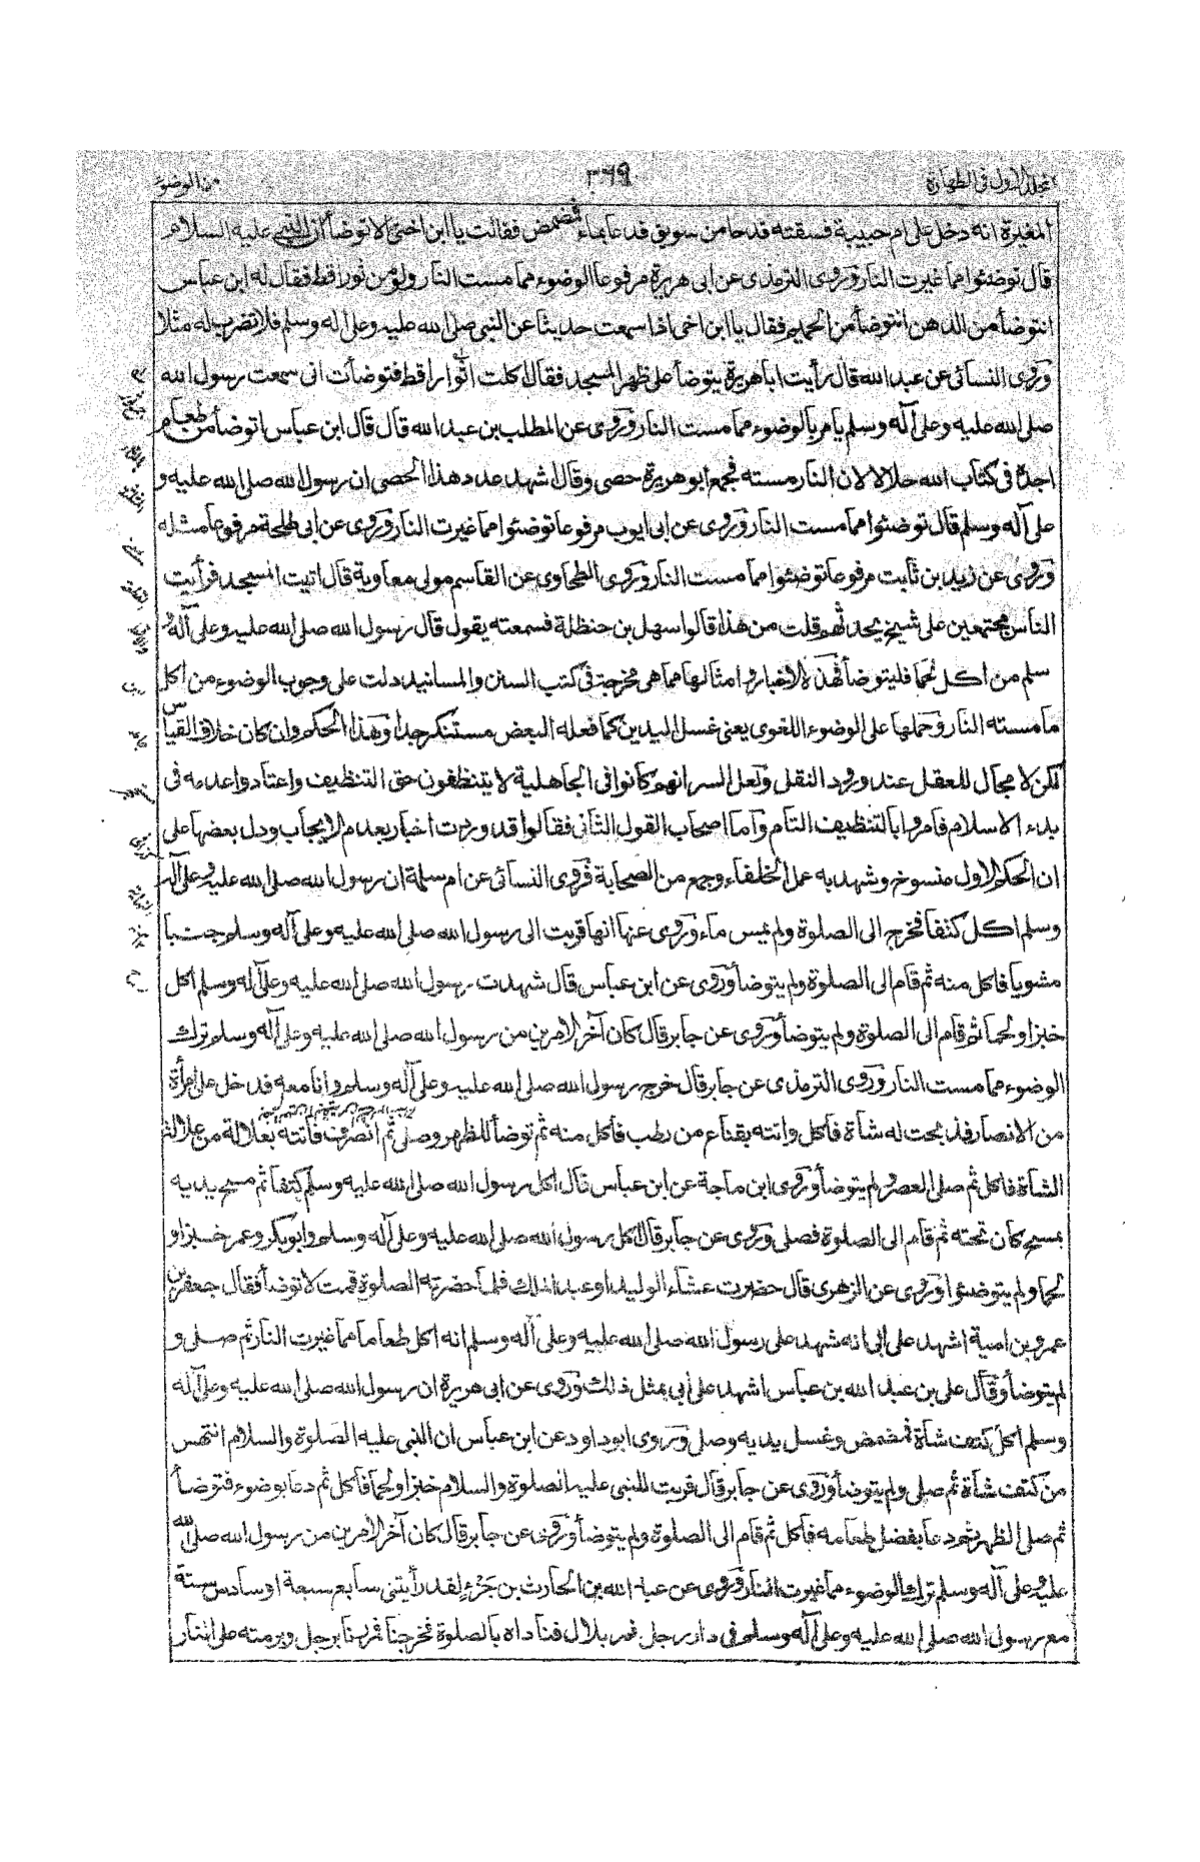 المجلد الاول فى الطهارة
٣٦٩
من الوضوء
المغيرة انه دخل على ام حبيبة فسقته قدحا من سويق فدعا بماء فمضمض فقالت يا ابن اختى الا توضأ ان النبي عليه السلام
قال توضئوا مما غيرت النار وروى الترمذى عن ابى هريرة مرفوعا الوضوء مما مست النار ولو من ثور اقط فقال له ابن عباس
انتوضأ من الدهن انتوضأ من الحميم فقال يا ابن اخى اذا سمعت حديثا عن النبى صلى الله عليه وعلى اله وسلم فلا تضرب له مثلا
وروى النسائى عن عبد الله قال رأيت ابا هريرة يتوضأ على ظهر المسجد فقال اكلت اثوار اقط فتوضأت انى سمعت رسول الله
صلى الله عليه وعلى آله وسلم يامر بالوضوء مما مست النار وروى عن المطلب بن عبد الله قال قال ابن عباس اتوضأ من طعام
اجدة فى كتاب الله حلالا لان النار مسته فجمع ابو هريرة حصى وقال اشهد عدد هذا الحصى ان رسول الله صلى الله عليه و
على آله وسلم قال توضئوا مما مست النار وروى عن ابى ايوب مرفوعا توضئوا مما غيرت النار وروى عن ابى طلحة مرفوعا مثله
وروى عن زيد بن ثابت مرفوعا توضئوا مما مست النار وروى الطحاوى عن القاسم مولى معاوية قال اتيت المسجد فرأيت
الناس مجتمعين على شيخ يحدثهم قلت من هذا قالوا سهل بن حنظلة فسمعته يقول قال رسول الله صلى الله عليه وعلى آله و
سلم من اكل لحما فليتوضأ فهذة الاخبار وامثالها مما هى مخرجة فى كتب السنن والمسانيد دلت على وجوب الوضوء من اكل
ما مسته النار وحملها على الوضوء اللغوى يعنى غسل اليدين كما فعله البعض مستنكر جدا وهذا الحكم وان كان خلاف القياس
لكن لا مجال للعقل عند ورود النقل ولعل السر انهم كانوا فى الجاهلية لا يتنظفون حق التنظيف واعتادوا عدمه فى
بدء الاسلام فامروا بالتنظيف التام وآما اصحاب القول الثانى فقالوا قد وردت اخبار بعدم الايجاب ودل بعضها على
ان الحكم الاول منسوخ وشهد به عمل الخلفاء وجمع من الصحابة فروى النسائى عن ام سلمة ان رسول الله صلى الله عليه وعلى آله
وسلم اكل كتفا فخرج الى الصلوة ولم يمس ماء وروى عنها انها قربت الى رسول الله صلى الله عليه وعلى آله وسلم جنبا
مشويا فاكل منه ثم قام الى الصلوة ولم يتوضأ وروى عن ابن عباس قال شهدت رسول الله صلى الله عليه وعلى اله وسلم اكل
خبزا ولحما ثم قام الى الصلوة ولم يتوضأ وروى عن جابر قال كان آخر الامرين من رسول الله صلى الله عليه وعلى آله وسلم ترك
الوضوء مما مست النار وروى الترمذى عن جابر قال خرج رسول الله صلى الله عليه وعلى آله وسلم وانا معه فدخل على امرأة
من الانصار فذبحت له شاة فاكل واتته بقناع من رطب فأكل منه ثم توضأ للظهر وصلى ثم انصرف فاتته بعلالة من علالة
الشاة فاكل ثم صلى العصر ولم يتوضأ وروى ابن ماجة عن ابن عباس قال اكل رسول الله صلى الله عليه وسلم كتفا ثم مسح يديه
بمسح كان تحته ثم قام الى الصلوة فصلى وروى عن جابر قال اكل رسول الله صلى الله عليه وعلى آله وسلم وابو بكر وعمر خبزا و
لحما ولم يتوضئوا وروى عن الزهرى قال حضرت عشاء الوليد او عبد الملك فلما حضرته الصلوة قمت لاتوضأ فقال جعفر بن
عمرو بن امية اشهد على ابى انه شهد على رسول الله صلى الله عليه وعلى آله وسلم انه اكل طعاما مما غيرت النار ثم صلى و
لم يتوضأ وقال على بن عبد الله بن عباس اشهد على أبى بمثل ذلك وروى عن ابى هريرة ان رسول الله صلى الله عليه وعلى آله
وسلم اكل كتف شاة فمضمض وغسل يديه وصلى وروى ابو داود عن ابن عباس ان النبى عليه الصلوة والسلام انتهس
من كتف شاة ثم صلى ولم يتوضأ وروى عن جابر قال قربت للنبى عليه الصلوة والسلام خبزا ولحما فأكل ثم دعا بوضوء فتوضأ
ثم صلى الظهر ثم دعا بفضل طعامه فأكل ثم قام الى الصلوة ولم يتوضأ وروى عن جابر قال كان آخر الامرين من رسول الله صلى الله
عليه وعلى آله وسلم ترك الوضوء مما غيرت النار وروى عن عبد الله بن الحارث بن جزء لقد رأيتنى سابع سبعة او سادس ستة
مع رسول الله صلى الله عليه وعلى آله وسلم فى دار رجل فمر بلال فناداه بالصلوة فخرجنا فمررنا برجل وبرمته على النار